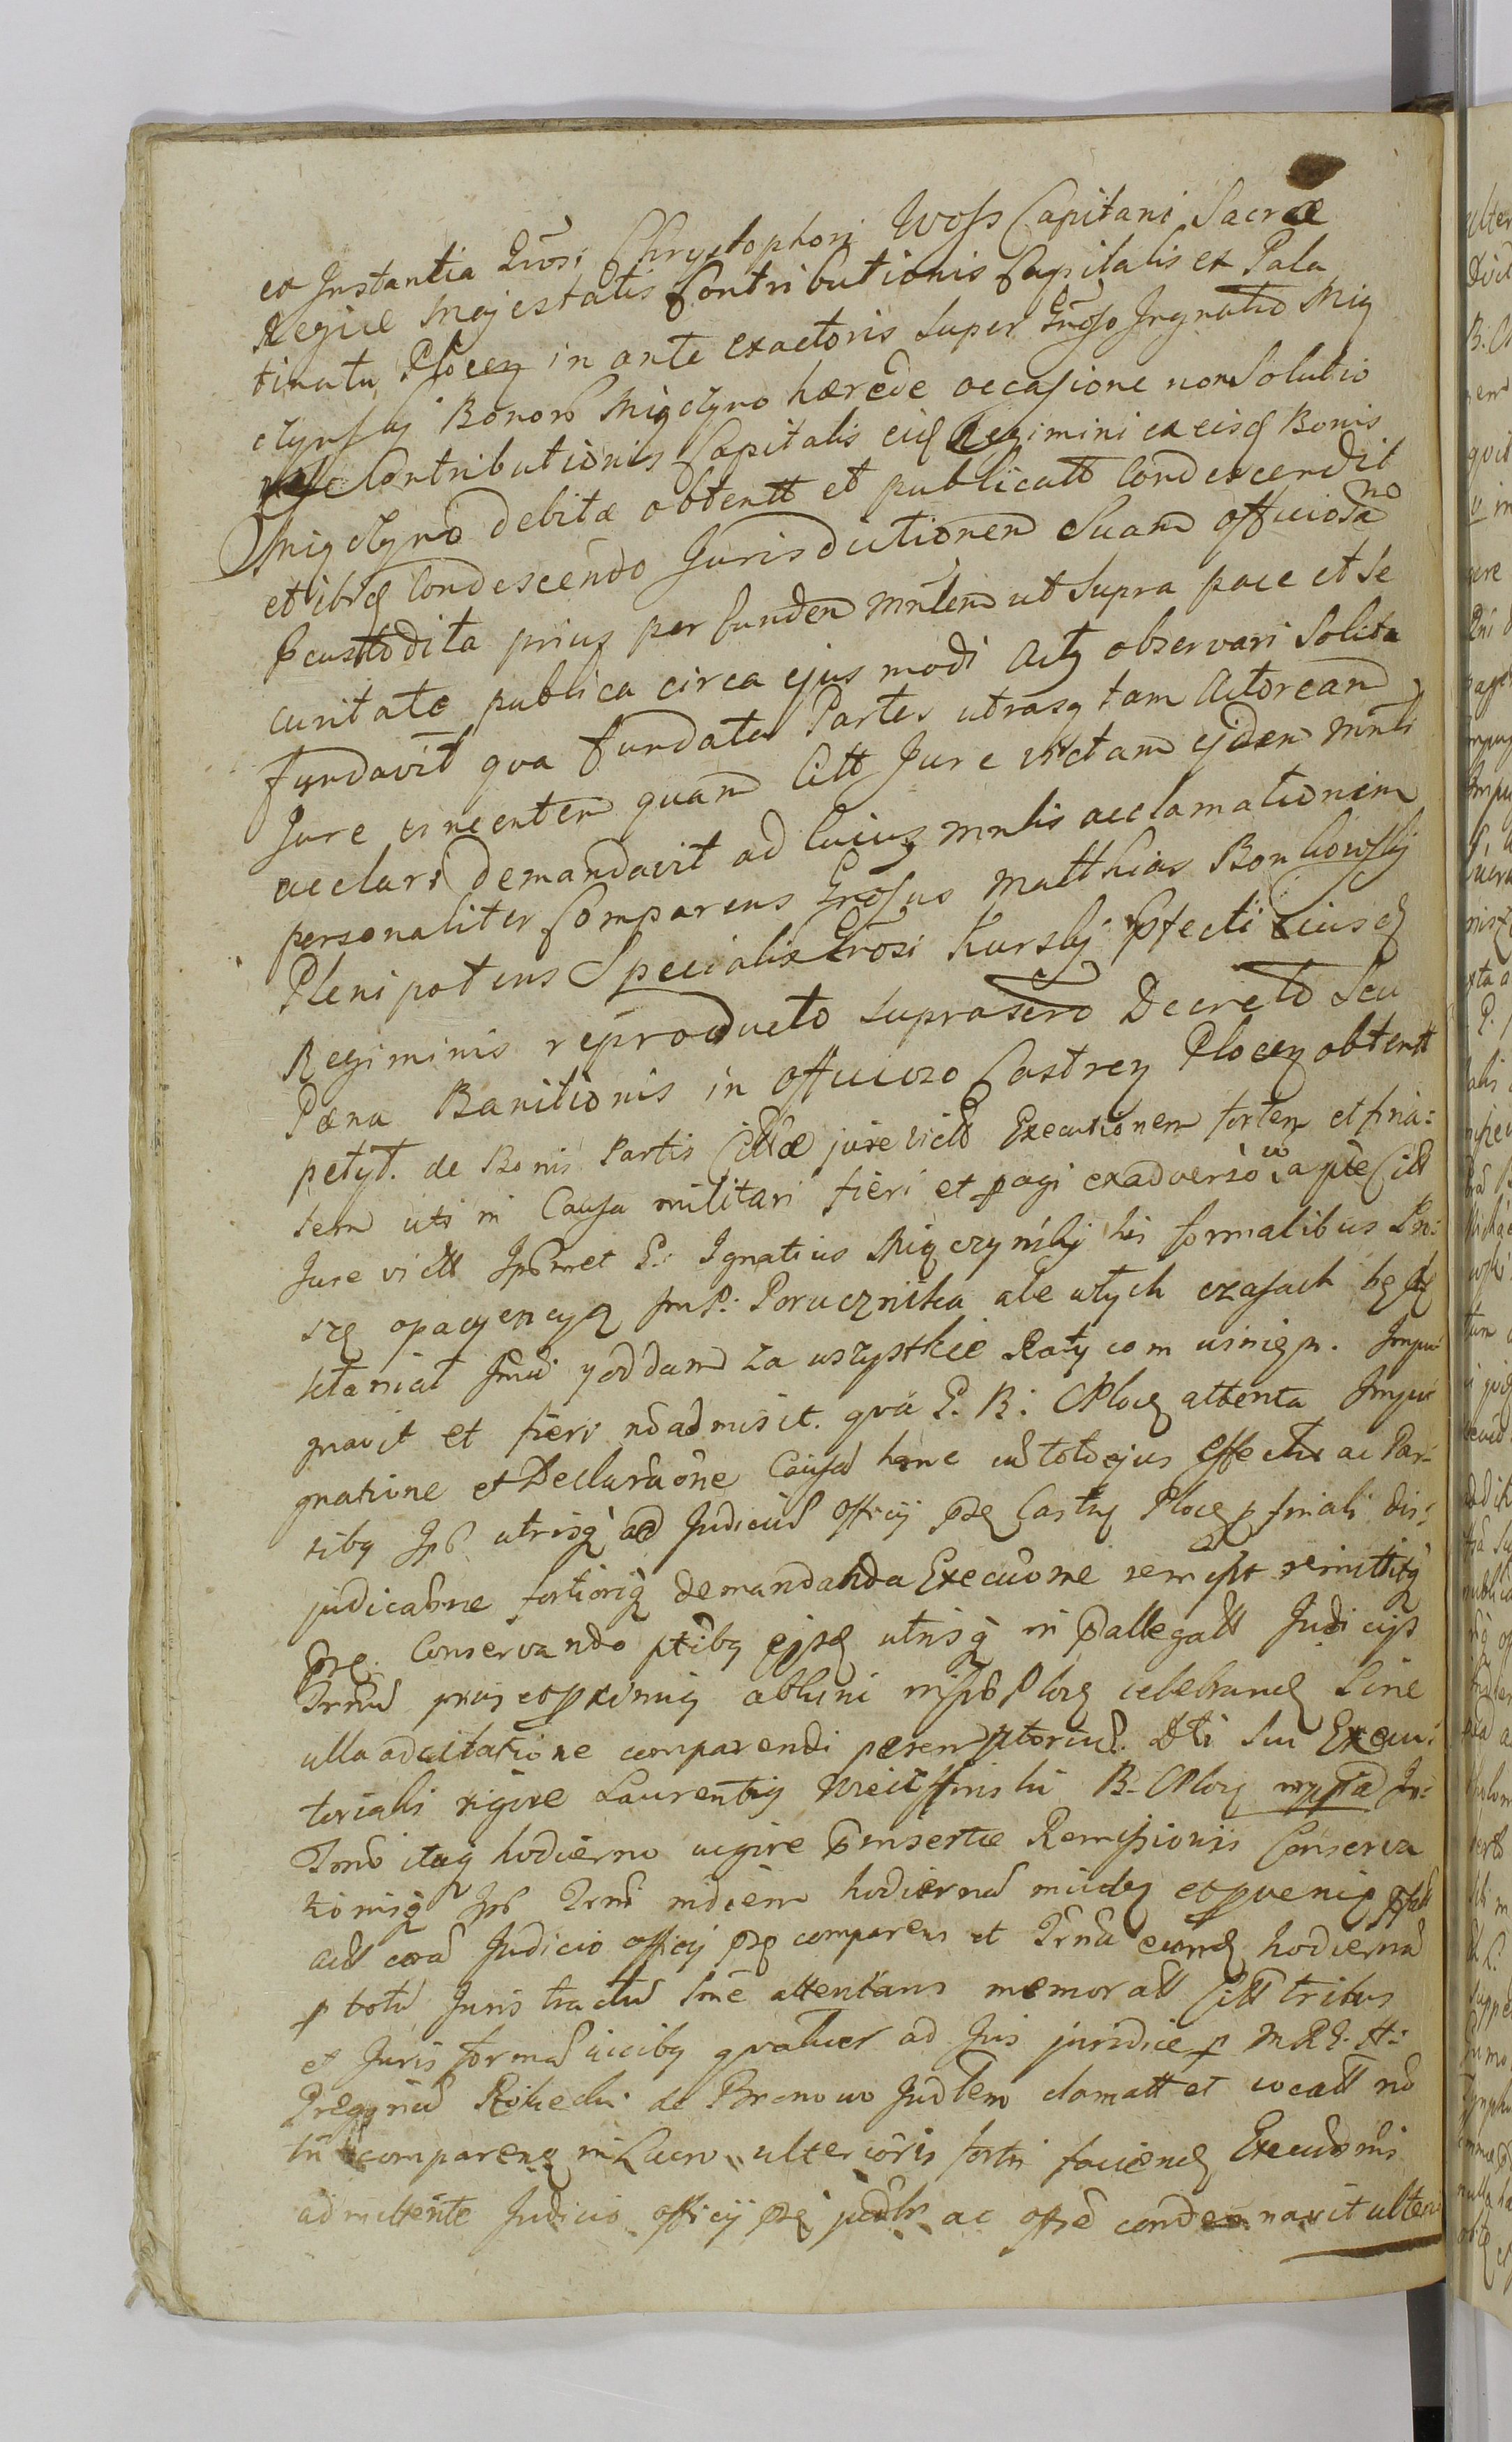 ex Instantia Grosi Chrystophori Woss Capitani Sacræ
Regiæ Majestatis Contributionis Capitalis ex Pala
tinatu Plocen in ante exactoris super Groso Ignatio Mię
czynski Bonorũ Mięczyno hærede occasione non Solutio
Contributionis Capitalis eid Regimini ex eisd Bonis
Mięczyno debitæ obtentt et publicatt condescendit
et ibiq condescendo Jurisdictionem Suam officiosã no
custodita prius per eunden mnlem ut supra pace et se
curitate publica circa ejus modi Actq observari Solita
fundavit qua fundata Partes utrasq tam Actoream
Jure vincentem quam Citt Jure victam ejdem mnli
acclari demandavit ad cuiusq mnlis acclamationem
personaliter Comparens Grosus Matthias Bonkowskj
Plenipotens Specialis Grosi Kurskj Pfecti Eiusd
Regiminis reproducto suprascro Decreto seu
Pæna Banitionis in officioso Castren Plocen obtentt
petyt. de Bonis Partis Cittæ jure victæ Executionem fortem et fina:
lem uti in Causa militari fieri et pagi ex adverso vo a pte Citt
Jure victt Ipsemet G: Ignatius Mięczynskj his formalibus Pro:
szę o pacyencyą Jm P: Porucznika ale w tych czasach będę
się staniał y oddam za wszystkie Raty com winien. Impu
gnavit et fieri nõ admisit. qua G. B: CPloc attenta Impu
gnatione et Declaraone Causã hanc cũ toto ejus effectu ac Par
tibq Ips utrisq ad Judiciũ Officij pse Castr Plocen p finali dis:
judicaone fortioriq demandanda Execuõne remisit remittitq
pse. Conservando ptibq ejsd utrisq in pallegatt Judicijs
Trmũ prius et proximiq abhinc Ploc celebrand sine
ulla adcitatione comparendi peremptoriũ. Dti sui Execu:
torialis rigore Laurentiq B. CPloc mppa In:
Trno itaq hodierno vigore pinsertæ Remissionis Conserva
tionisq Ips Trmi in diem hodiernũ incid et pveni
Citt corã Judicio officij pse comparens et Trmũ eund hodiernũ
p totũ Juris tractũ sine attentans memoratt Citt tribus
et Juris formã vicibq gnaliter ad Jus juridice p M.R.G.A:
Pregorium Rokicki de Bronowo Judlem clamatt et vocatt nõ
tñ comparens in Lucro ulterioris fortis faciend Execuõnis
admittente Judicio officij pse pcdtis ac ofse condemnavit ulteri